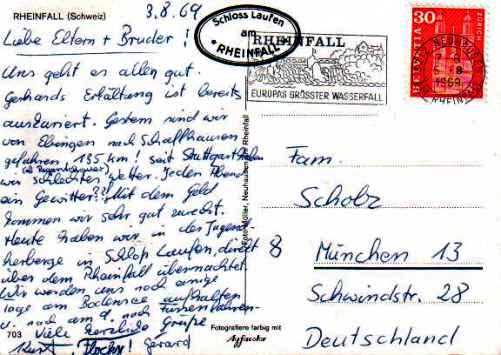 RHEINFALL (Schweiz)
3.8.69
Liebe Eltern + Bruder!
Uns geht es allen gut.
Gerhards Erkältung ist bereits
auskuriert. Gestern sind wir
von Ebingen nach Schaffhausen
gefahren 155 km! seit Stuttgart haben
wir schlechtes Wetter. Jeden Abend
ein Gewitter?! Mit dem Geld
kommen wir sehr gut zurecht.
Heute haben wir in der Jugend-
herberge in Schloß Laufen, direkt
über dem Rheinfall übernachtet.
Wir werden uns noch einige
Tage am Bodensee aufhalten
u. noch am
Viele herzliche Grüße
Kurt, Gerard
703
Schloss Laufen
am
RHEINFALL
RHEINFALL
EUROPAS GRÖSSTER WASSERFALL
30
HELVETIA
ZÜRICH
1969
Foto Müller, Neuhausen am Rheinfall
Fotografiere farbig mit
Agfacolor
Fam.
Scholz
8 München 13
Schwindstr. 28
Deutschland